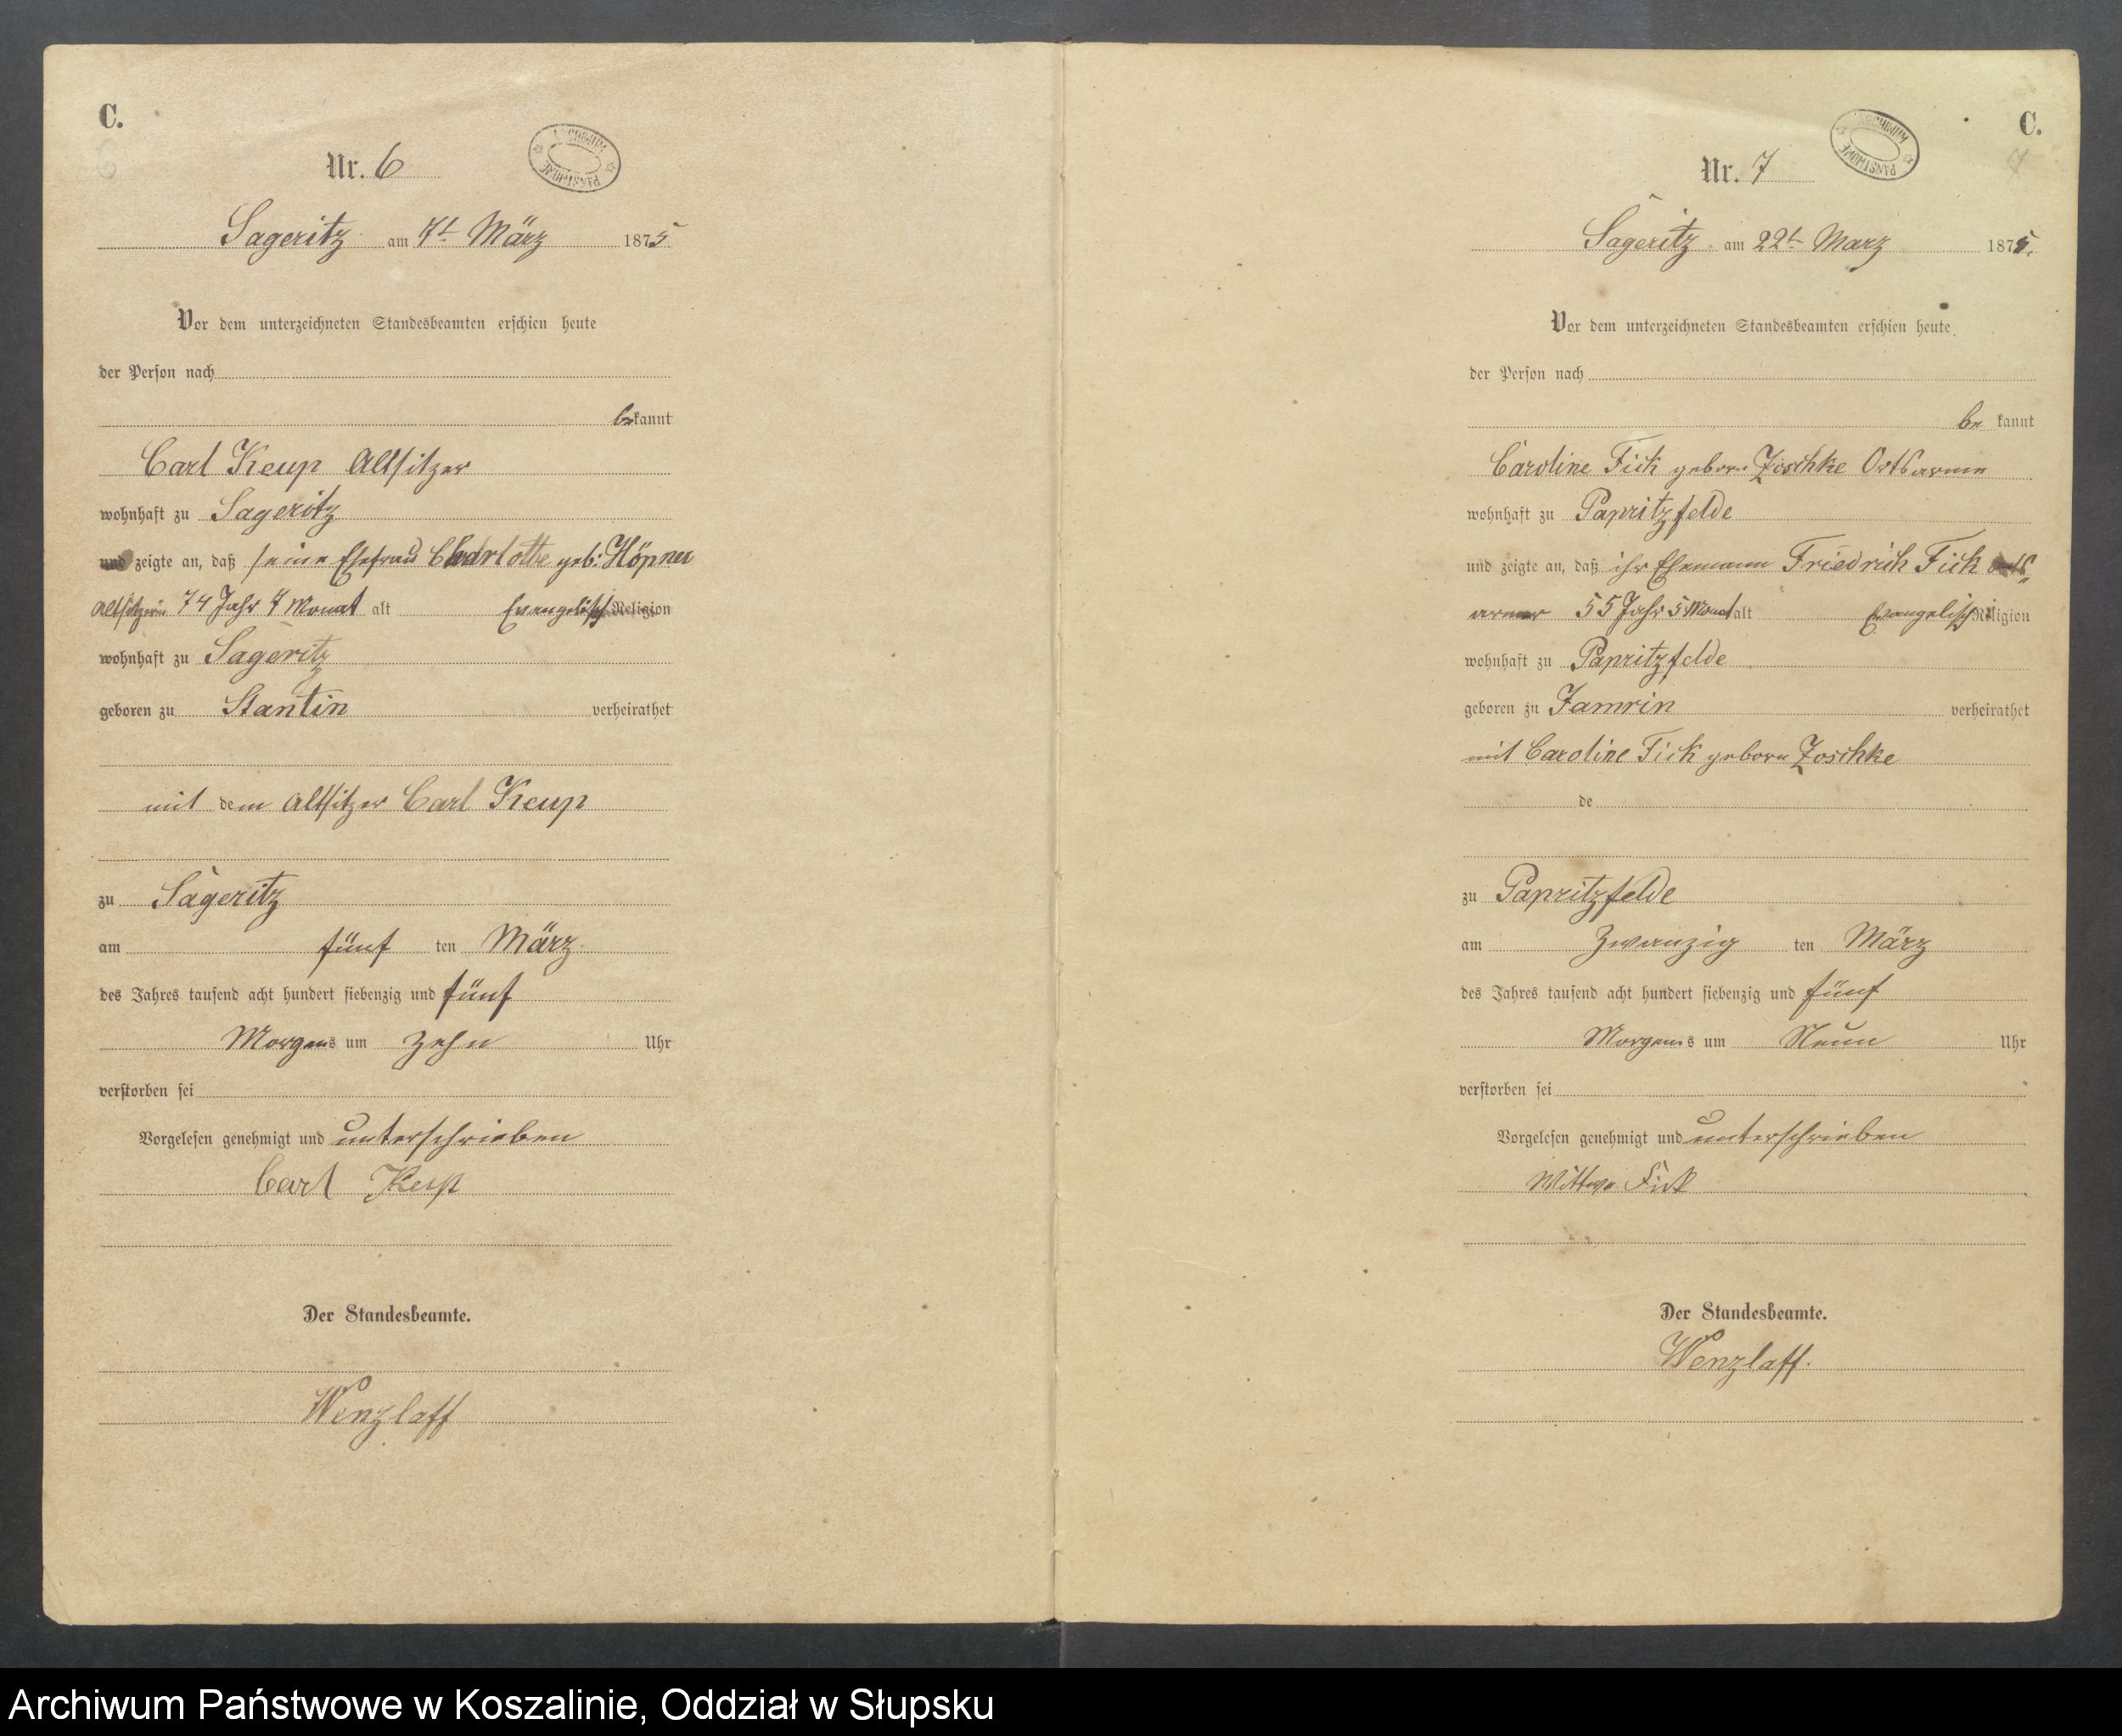 C.
Nr. 6
ARCHIWUM PAŃSTWOWE
Sageritz am 7t März 1875
Vor dem unterzeichneten Standesbeamten erschien heute
der Person nach
bekannt
Carl Keup Altsitzer
wohnhaft zu Sageritz
und zeigte an, daß seine Ehefrau Charlotte geb: Höpner
Altsitzerin 74 Jahr 7 Monat alt Evangelisch Religion
wohnhaft zu Sageritz
geboren zu Stantin verheirathet
mit dem Altsitzer Carl Keup
zu Sageritz
am fünf ten März
des Jahres tausend acht hundert siebenzig und fünf
Morgens um Zehn Uhr
verstorben sei
Vorgelesen genehmigt und unterschrieben
Carl Keup
Der Standesbeamte.
Wenzlaff
C.
Nr. 7
ARCHIWUM PAŃSTWOWE
Sageritz am 22t Marz 1875.
Vor dem unterzeichneten Standesbeamten erschien heute
der Person nach
be kannt
Caroline Fick geborn Zoschke Ortsarme
wohnhaft zu Papritzfelde
und zeigte an, daß ihr Ehemann Friedrich Fick Orts
armer 55 Jahr 5 Monat alt Evangelisch Religion
wohnhaft zu Papritzfelde
geboren zu Jamrin verheirathet
mit Caroline Fick geborn Zoschke
de
zu Papritzfelde
am Zwanzig ten März
des Jahres tausend acht hundert siebenzig und fünf
Morgens um Neun Uhr
verstorben sei
Vorgelesen genehmigt und unterschrieben
Wittwe Fick
Der Standesbeamte.
Wenzlaff.
Archiwum Państwowe w Koszalinie, Oddział w Słupsku